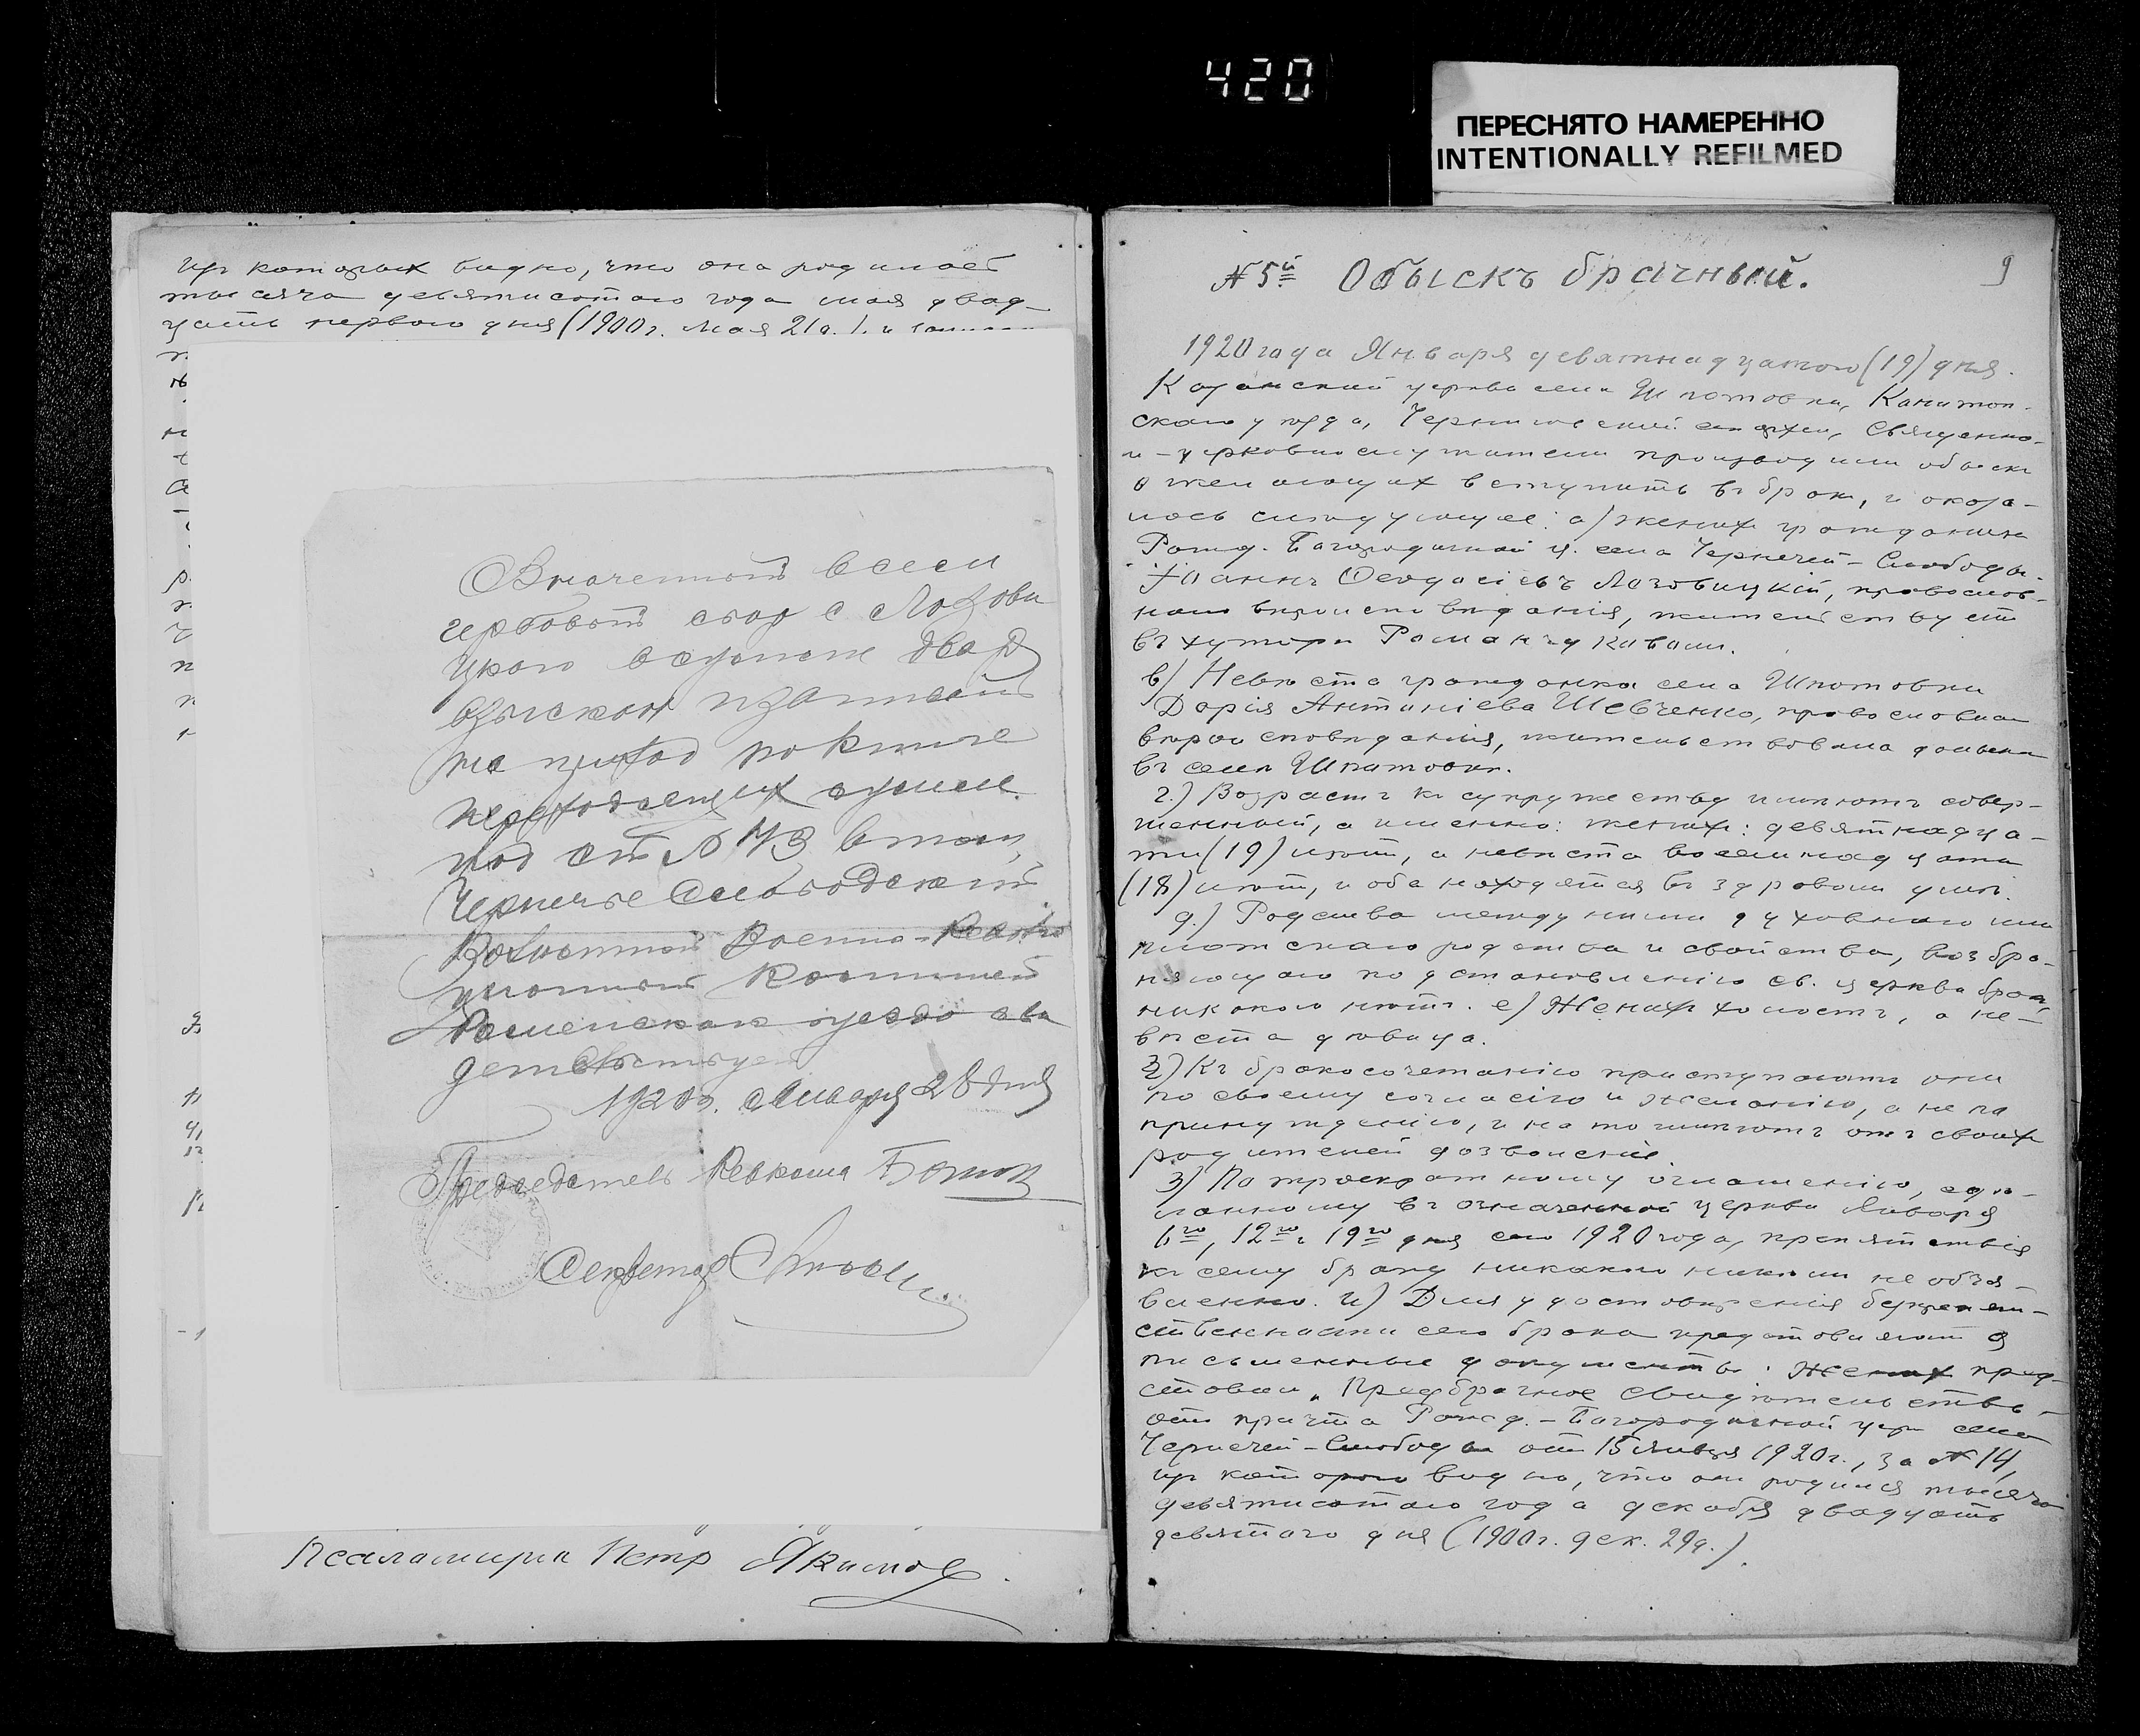 420
ПЕРЕСНЯТО НАМЕРЕННО
INTENTIONALLY REFILMED
изъ которыхъ видно, что она родилась
тысяча девятисотаго года мая двад-
цать перваго дня (1900 г. мая 21 д.) и
Означенный в сем
гербовый сбор с Лозови
цкого
взыскан и записан
на приход по книге
переходящих сумм
под ст № 73 в том,
Чернече Слободский
Волостной Военно-Револю
ционный Комитет
Роменскаго уезда сви
детельствует
1920 г. Января 28 дня
Председатель Ревкома
Секретарь
Псаломщик Петр Якимов
9
№ 5й Обыскъ брачный.
1920 года Января девятнадцатого (19) дня.
Казанской церкви села Шпотовки, Конотоп-
скаго уезда, Черниговской епархии, Священно-
и-церковнослужители производили обыскъ
о желающих вступить въ бракъ, и оказа-
лось следующее: а) жених гражданинъ
Рожд. Богородичной ц. села Чернечей-Слободы
Іоаннъ Феодосіевъ Лозовицкій, православ-
наго вероисповеданія, жительствуетъ
въ хуторе Романчуковом.
в) Невеста гражданка села Шпотовки
Дарія Антоніева Шевченко, православнаго
вероисповеданія, жительствовала доныне
въ селе Шпотовке.
г.) Возрастъ къ супружеству имеютъ совер-
шенный, а именно: жених: девятнадца-
ти (19) лет, а невеста восемнадцати
(18) лет, и оба находятся въ здравом уме.
д.) Родства между ними духовнаго или
плотскаго родства и свойства, возбра-
няющаго по установленію св. церкви бракъ,
никакого нетъ. е) Жених холостъ, а не-
веста девица.
ж) Къ бракосочетанію приступаютъ они
по своему согласію и желанію, а не по
принужденію, и на то имеютъ отъ своих
родителей дозволеніе.
з) По троекратному оглашенію, сде-
ланному въ означенной церкви Января
6го, 12го и 19го дня сего 1920 года, препятствія
къ сему браку никакого никем не объя-
вленно. и) Для удостоверенія безпрепят-
ственности сего брака представляются
письменные документы: Жених пред-
ставил „Предбрачное свидетельство"
отъ причта Рожд.-Богородичной цер. села
Чернечей-Слободы отъ 15 января 1920 г., за № 14,
изъ котораго видно, что он родился тысяча
девятисотаго года декабря двадцать
девятаго дня (1900 г. дек. 29 д.).